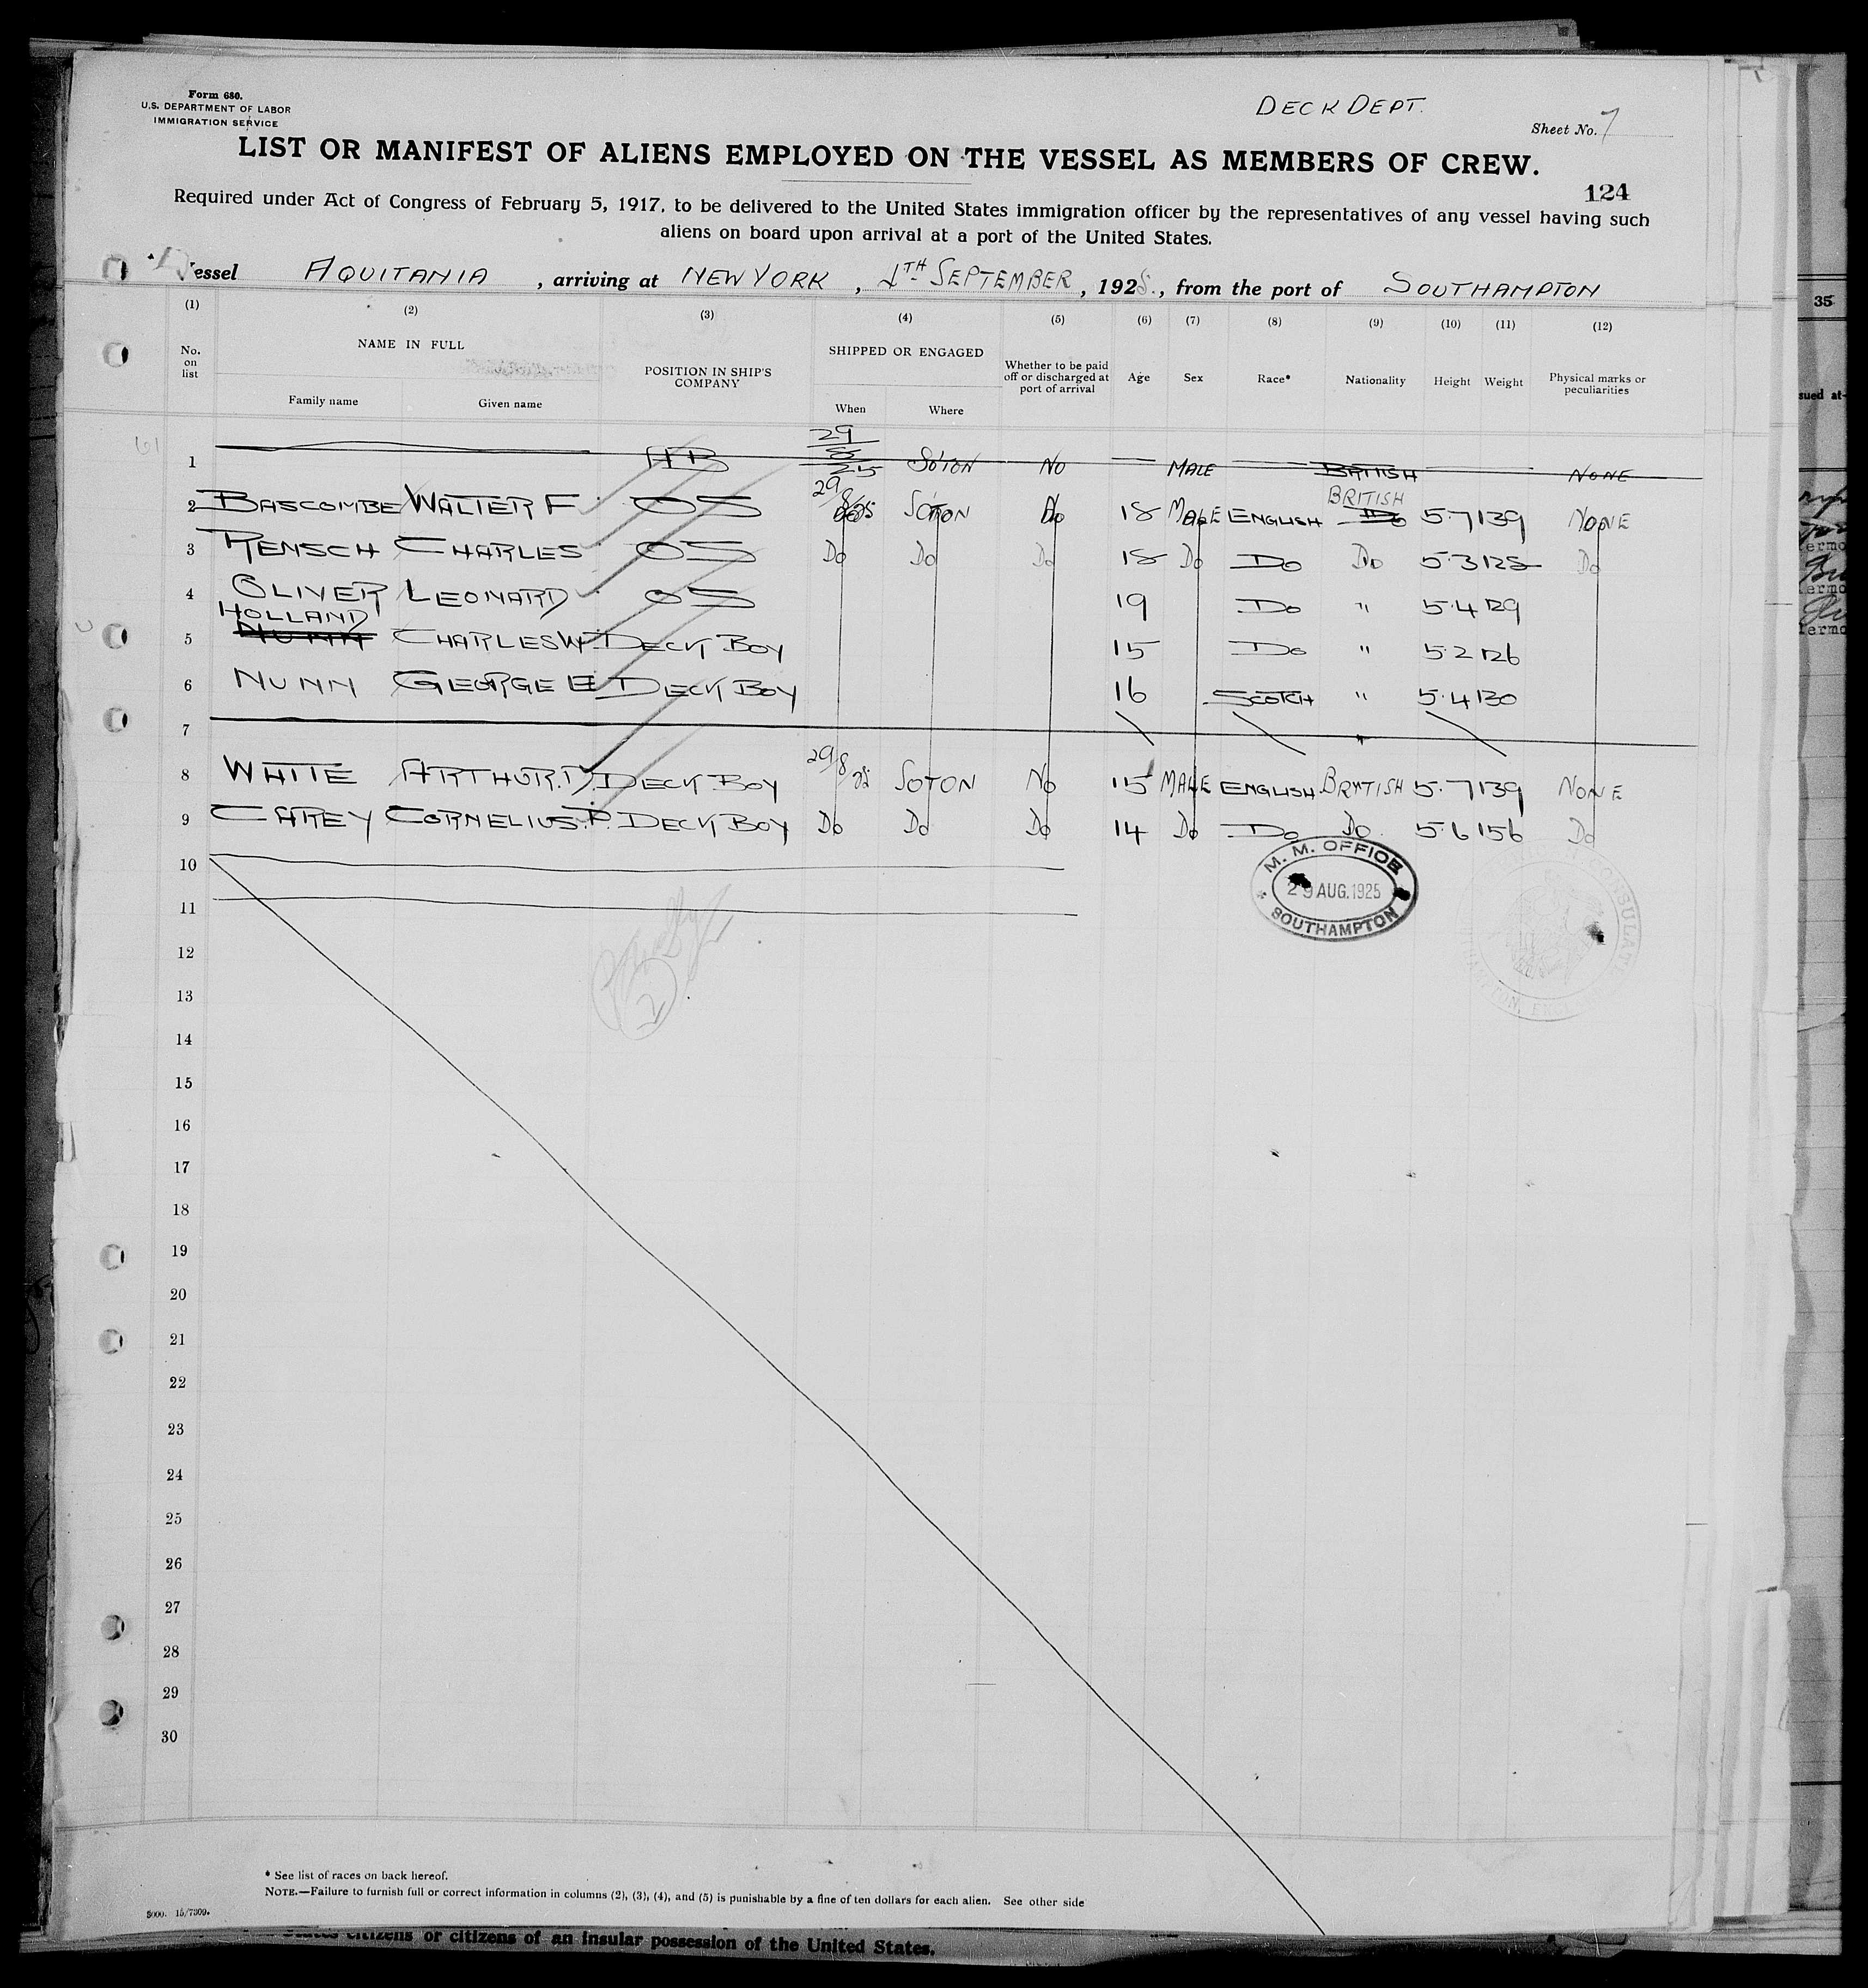 Form 680.
U.S. DEPARTMENT OF LABOR
IMMIGRATION SERVICE
DECK DEPT.
Sheet No. 7
LIST OR MANIFEST OF ALIENS EMPLOYED ON THE VESSEL AS MEMBERS OF CREW.
124
Required under Act of Congress of February 5, 1917, to be delivered to the United States immigration officer by the representatives of any vessel having such
aliens on board upon arrival at a port of the United States.
Vessel AQUITANIA, arriving at NEW YORK, 4TH SEPTEMBER, 1925., from the port of SOUTHAMPTON
(1) (2) (3) (4) (5) (6) (7) (8) (9) (10) (11) (12)
No. on list NAME IN FULL POSITION IN SHIP'S COMPANY SHIPPED OR ENGAGED Whether to be paid off or discharged at port of arrival Age Sex Race* Nationality Height Weight Physical marks or peculiarities
Family name Given name When Where
1 AB 29/8/25 SO'TON NO MALE BRITISH NONE
2 BASCOMBE WALTER F OS 29/8/25 SOTON No 18 MALE ENGLISH BRITISH 5.7 139 NONE
3 RENSCH CHARLES OS Do Do Do 18 Do Do Do 5.3 128 Do
4 OLIVER LEONARD OS 19 Do " 5.4 129
HOLLAND
5 NUNN CHARLES W. DECK BOY 15 Do " 5.2 126
6 NUNN GEORGE E DECK BOY 16 SCOTCH " 5.4 130
7
8 WHITE ARTHUR.D. DECK BOY 29/8/25 SOTON No 15 MALE ENGLISH BRITISH 5.7 139 NONE
9 CAREY CORNELIUS.P. DECK BOY Do Do Do 14 Do Do Do 5.6 156 Do
10
M. M. OFFICE
29 AUG. 1925
SOUTHAMPTON
11
12
13
14
15
16
17
18
19
20
21
22
23
24
25
26
27
28
29
30
* See list of races on back hereof.
NOTE.—Failure to furnish full or correct information in columns (2), (3), (4), and (5) is punishable by a fine of ten dollars for each alien. See other side
5000. 15/7309.
States citizens or citizens of an insular possession of the United States.
35
sued at-